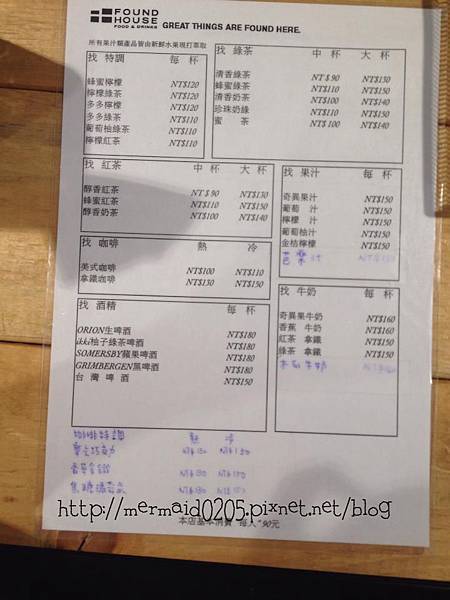 FOUND HOUSE
FOOD & DRINKS
GREAT THINGS ARE FOUND HERE.
所有果汁類產品皆由新鮮水果現打萃取
找 特調 每 杯
蜂蜜檸檬 NT$120
檸檬綠茶 NT$120
多多檸檬 NT$120
多多綠茶 NT$110
葡萄柚綠茶 NT$110
檸檬紅茶 NT$110
找 綠茶 中 杯 大 杯
清香綠茶 NT$90 NT$130
蜂蜜綠茶 NT$110 NT$150
清香奶茶 NT$100 NT$140
珍珠奶綠 NT$110 NT$150
蜜 茶 NT$100 NT$140
找 紅茶 中 杯 大 杯
醇香紅茶 NT$90 NT$130
蜂蜜紅茶 NT$110 NT$150
醇香奶茶 NT$100 NT$140
找 果汁 每 杯
奇異果汁 NT$150
葡萄 汁 NT$150
檸檬 汁 NT$150
葡萄柚汁 NT$150
金桔檸檬 NT$150
芭樂汁 NT$150
找 咖啡 熱 冷
美式咖啡 NT$100 NT$110
拿鐵咖啡 NT$130 NT$150
找 牛奶 每 杯
奇異果牛奶 NT$160
香蕉 牛奶 NT$160
紅茶 拿鐵 NT$150
綠茶 拿鐵 NT$150
木瓜牛奶
找 酒精 每 杯
ORION生啤酒 NT$180
ikki柚子綠茶啤酒 NT$180
SOMERSBY蘋果啤酒 NT$180
GRIMBERGEN黑啤酒 NT$180
台 灣 啤 酒 NT$150
咖啡特調 熱 冷
NT$130 NT$150
NT$130 NT$150
NT$130 NT$150
http://mermaid0205.pixnet.net/blog
本店基本消費 "每人" 90元